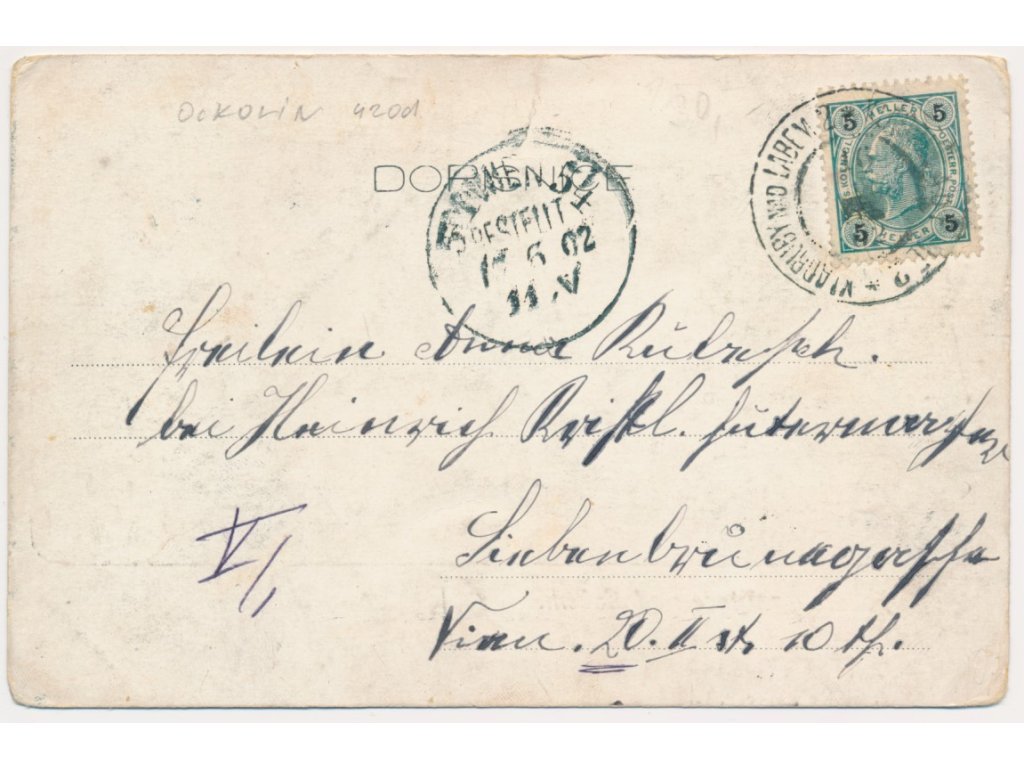 Ockolin 420d
DOPISNICE
WIEN 5/1
BESTELLT
17 6 02
11 V
KLADRUBY NAD LABEM
5 HELLER 5
5 HELLER 5
Freilein Anna
bei Heinrich Kristl.
Siebenbrunagasse
Vien. 20. II st. 10 th.
V/1